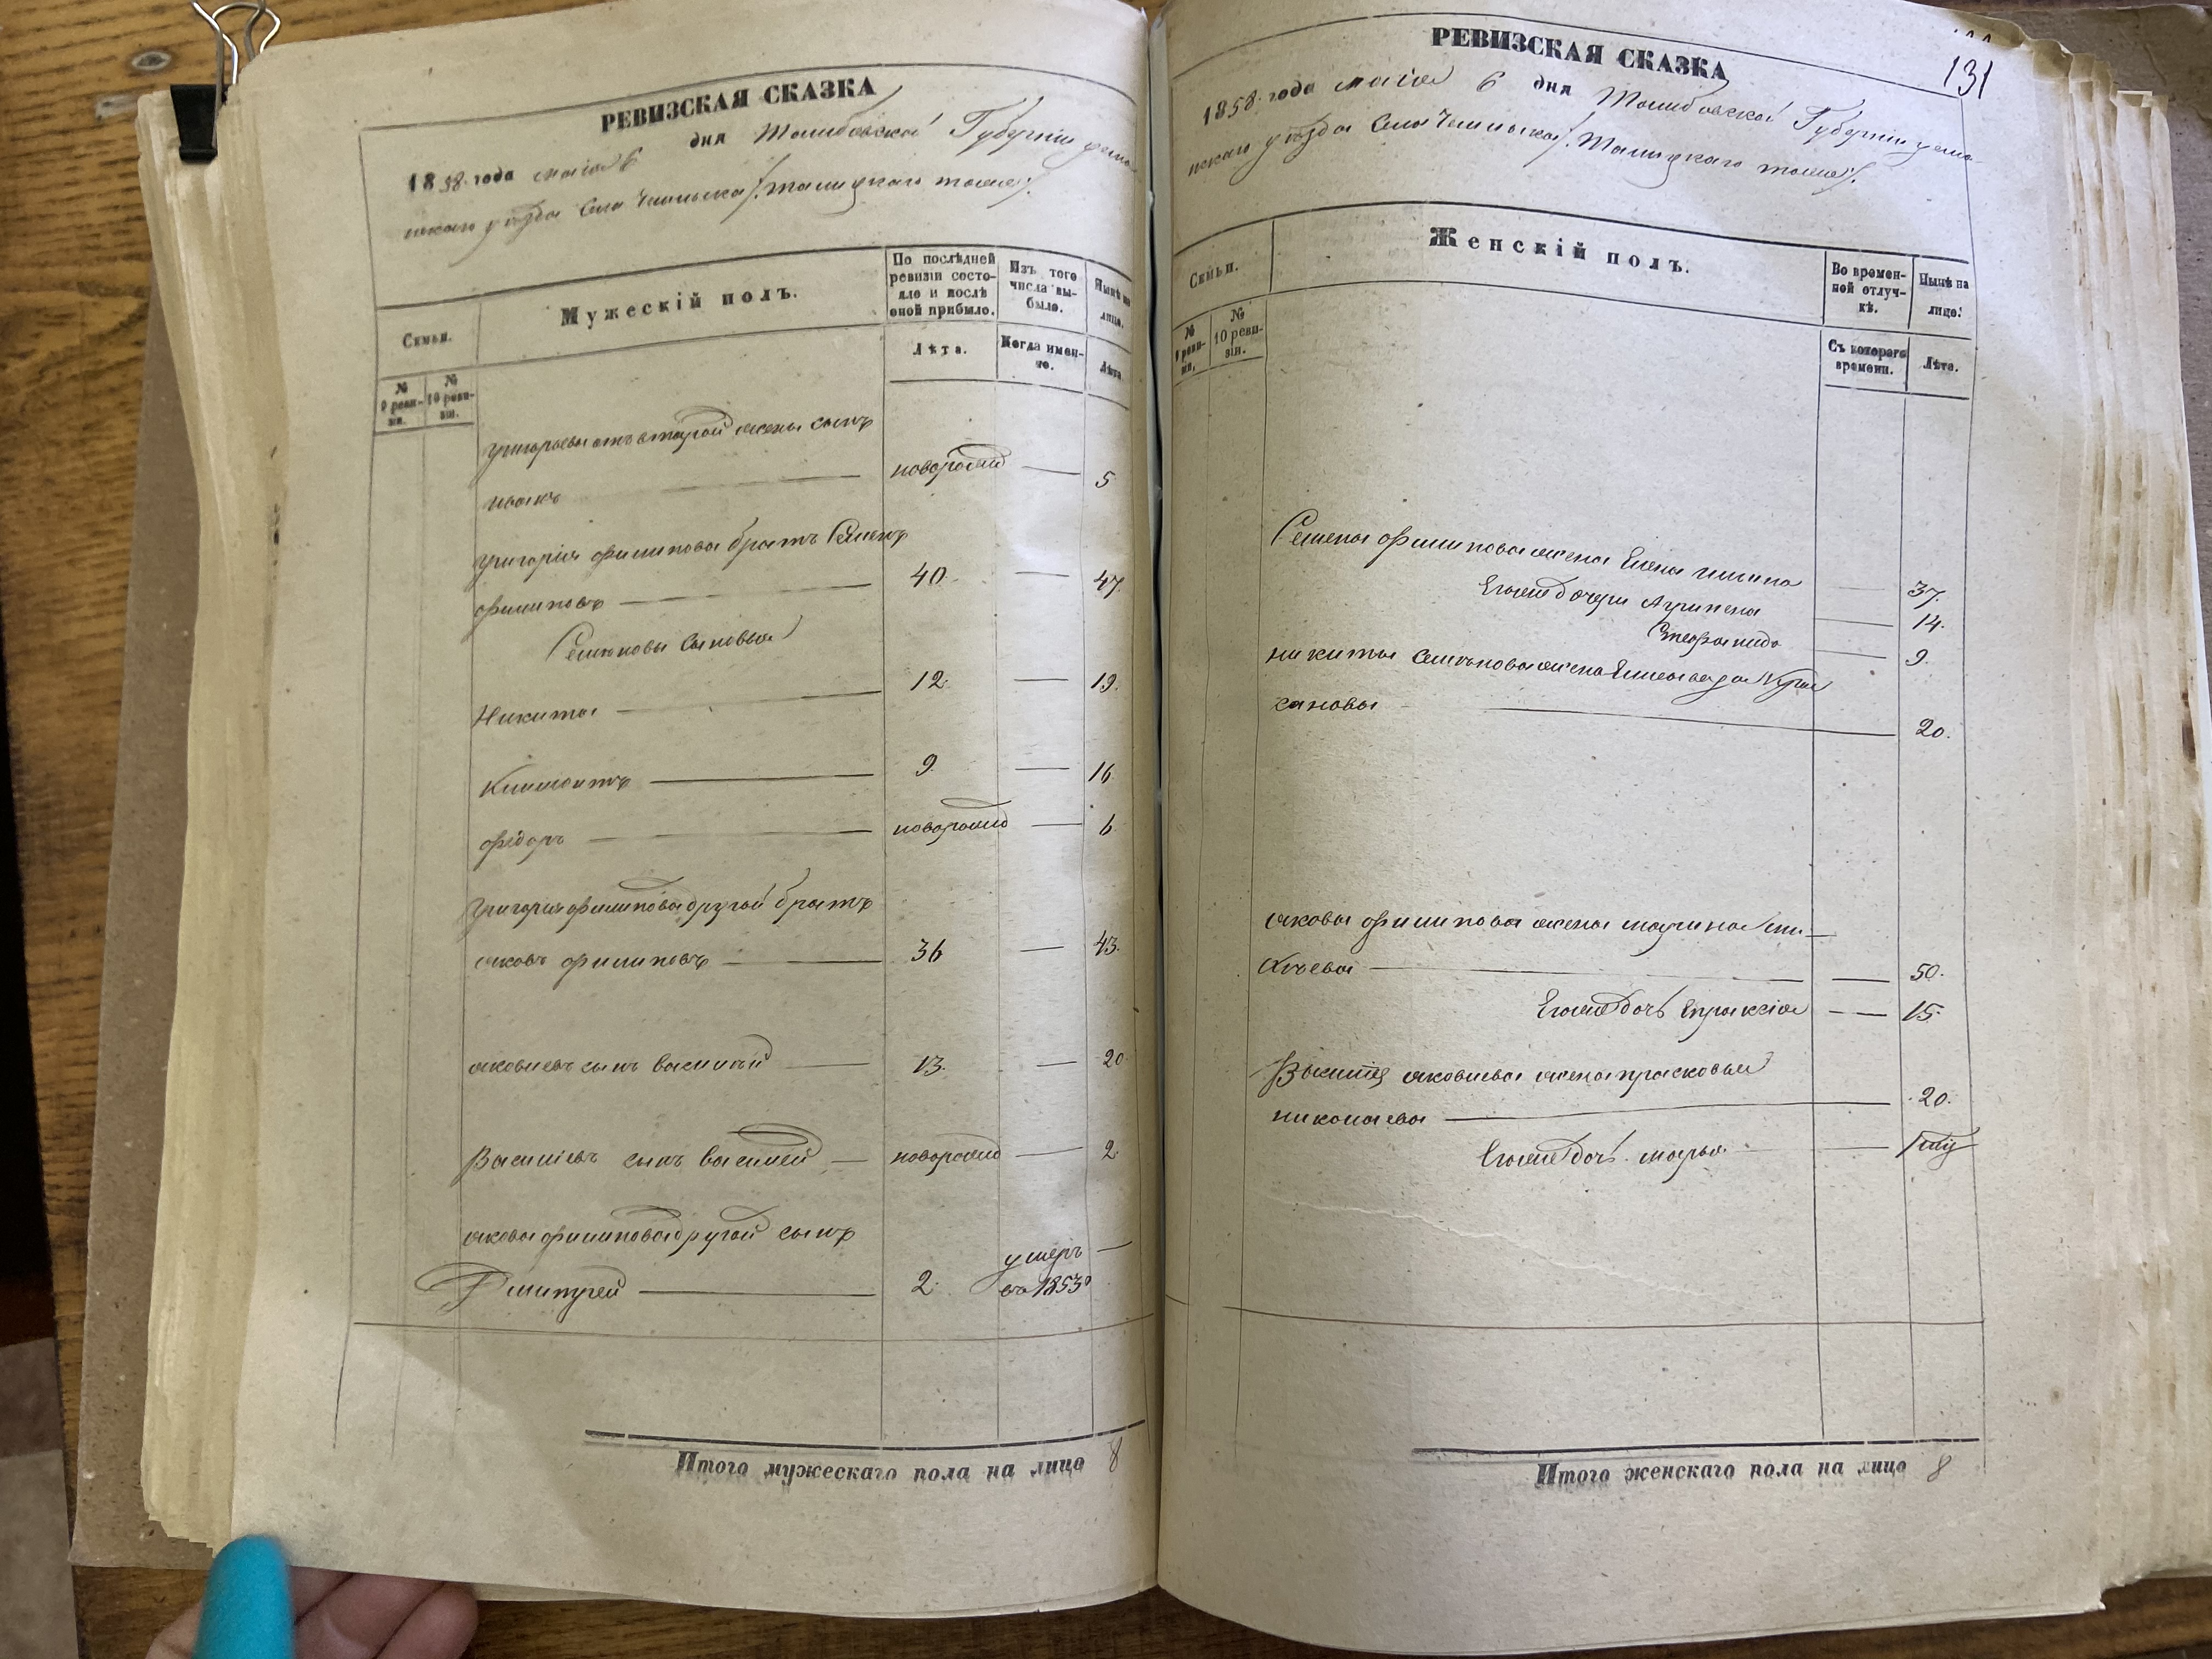 РЕВИЗСКАЯ СКАЗКА
1858 года маія 6 дня Тамбовской Губерніи усма-
нскаго уѣзда Села Чемлыка /:Талицкаго тоже:/.
Семьи.
Мужескій полъ.
По послѣдней ревизіи состояло и послѣ оной прибыло.
Изъ того числа выбыло.
Нынѣ на лицо.
№ 9 ревизіи.
№ 10 ревизіи.
Лѣта.
Когда именно.
Лѣта
Григорьевы отъ второй жены сынъ
иванъ новорожд 5
Григорія филипова братъ Семенъ
филиповъ 40. 47.
Семеновы Сыновья
Никита 12. 19.
Климонтъ 9. 16.
фёдоръ новорожд 6
Григорія филипова другой братъ
яковъ филиповъ 36 43.
яковлевъ сынъ василий 13. 20
Васильевъ сынъ василей новорожд 2.
якова филипова другой сынъ
Дмитрей 2. умеръ въ 1853
Итого мужескаго пола на лицо 8
131
РЕВИЗСКАЯ СКАЗКА
1858. года маія 6 дня Тамбовской Губерніи усма-
нскаго уѣзда Села Чемлыка /:Талицкаго тоже:/.
Семьи.
Женскій полъ.
Во временной отлучкѣ.
Нынѣ на лицо.
№ 9 ревизіи.
№ 10 ревизіи.
Съ котораго времени.
Лѣта.
Семена филипова жена Елена 37.
Егоже дочери Агрипена 14.
Стефанида 9.
никиты Семенова жена Елисавеѳа
20.
якова филипова жена марина
50.
Егоже дочь Епраксія 15.
Василія яковлева жена прасковья
николаева 20.
Егоже дочь марья
Итого женскаго пола на лицо 8